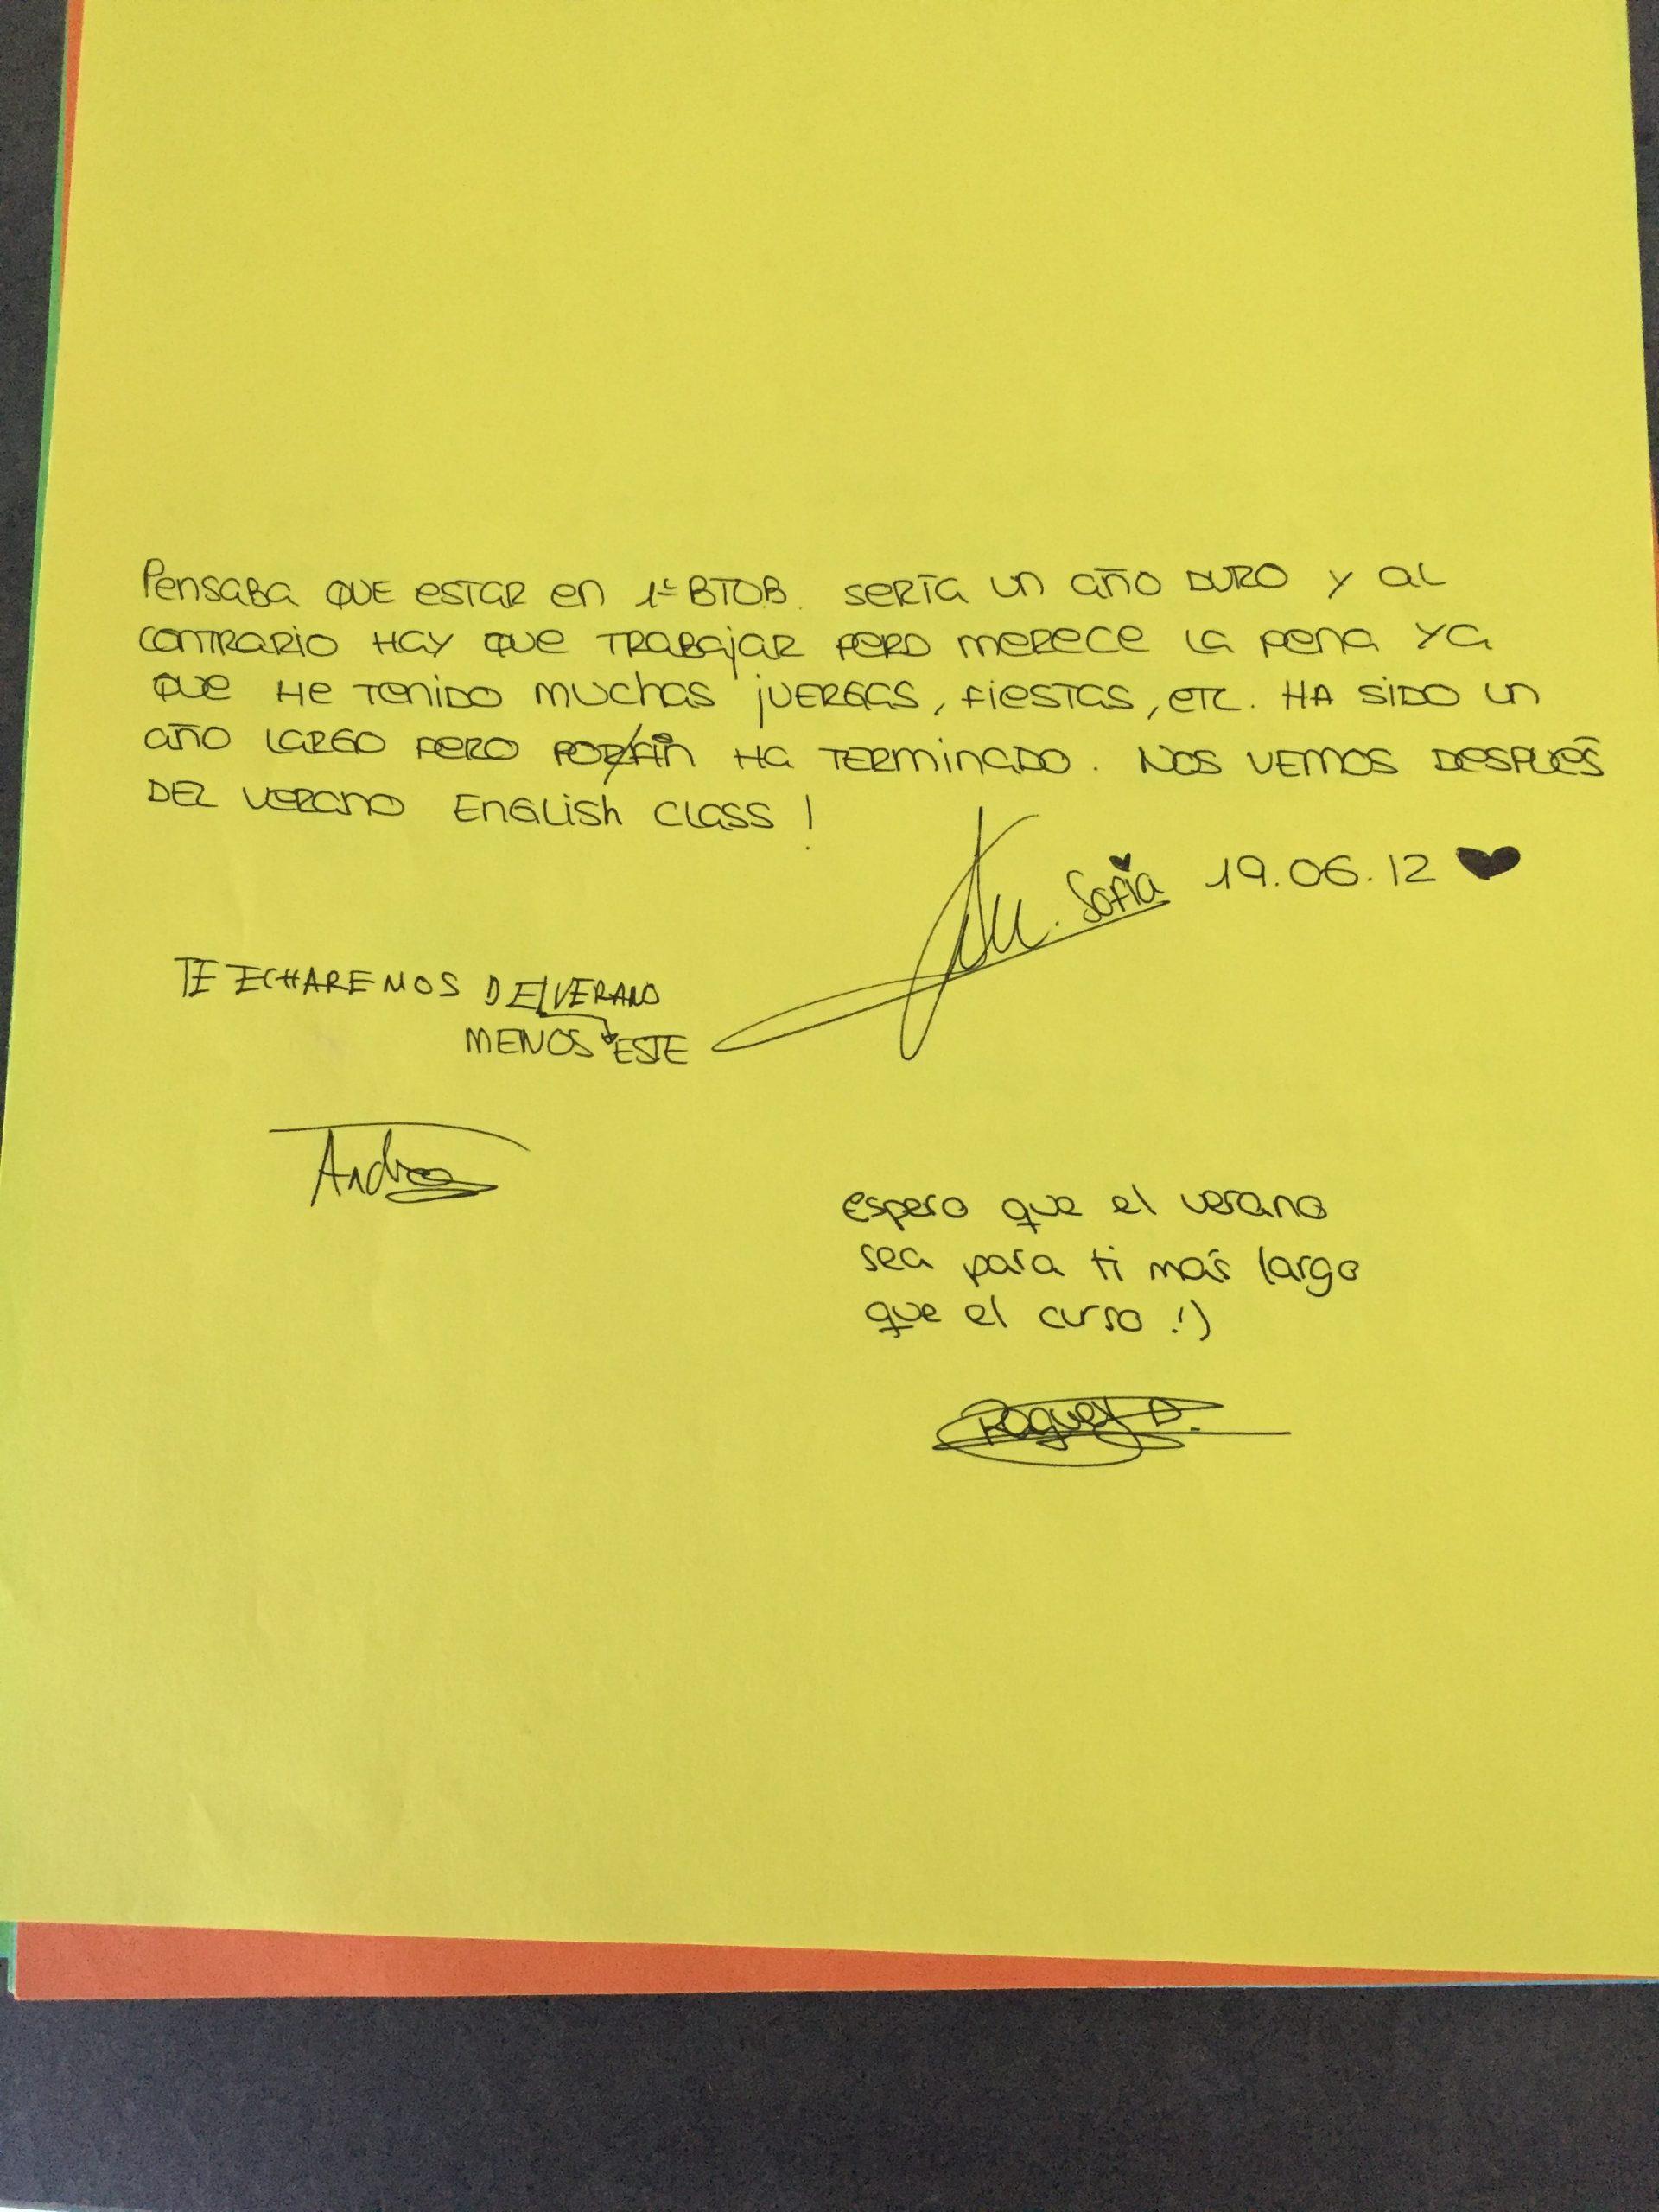 Pensaba que estar en 1º BTO B. sería un año duro y al
contrario hay que trabajar pero merece la pena ya
que he tenido muchas juergas, fiestas, etc. Ha sido un
año largo pero por/fin ha terminado. Nos vemos después
del verano English class!
Sofía 19.06.12 ♥
TE ECHAREMOS DEL VERANO
MENOS ESTE
Andrea
espero que el verano
sea para ti más largo
que el curso :)
Raquel D.